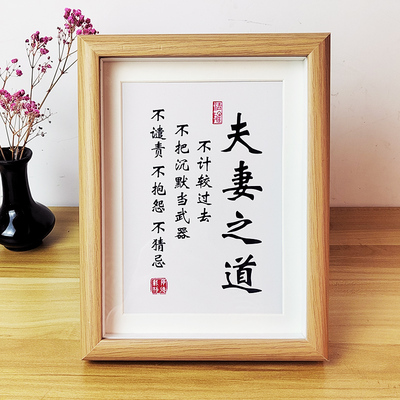 夫妻之道
不计较过去
不把沉默当武器
不谴责 不抱怨 不猜忌